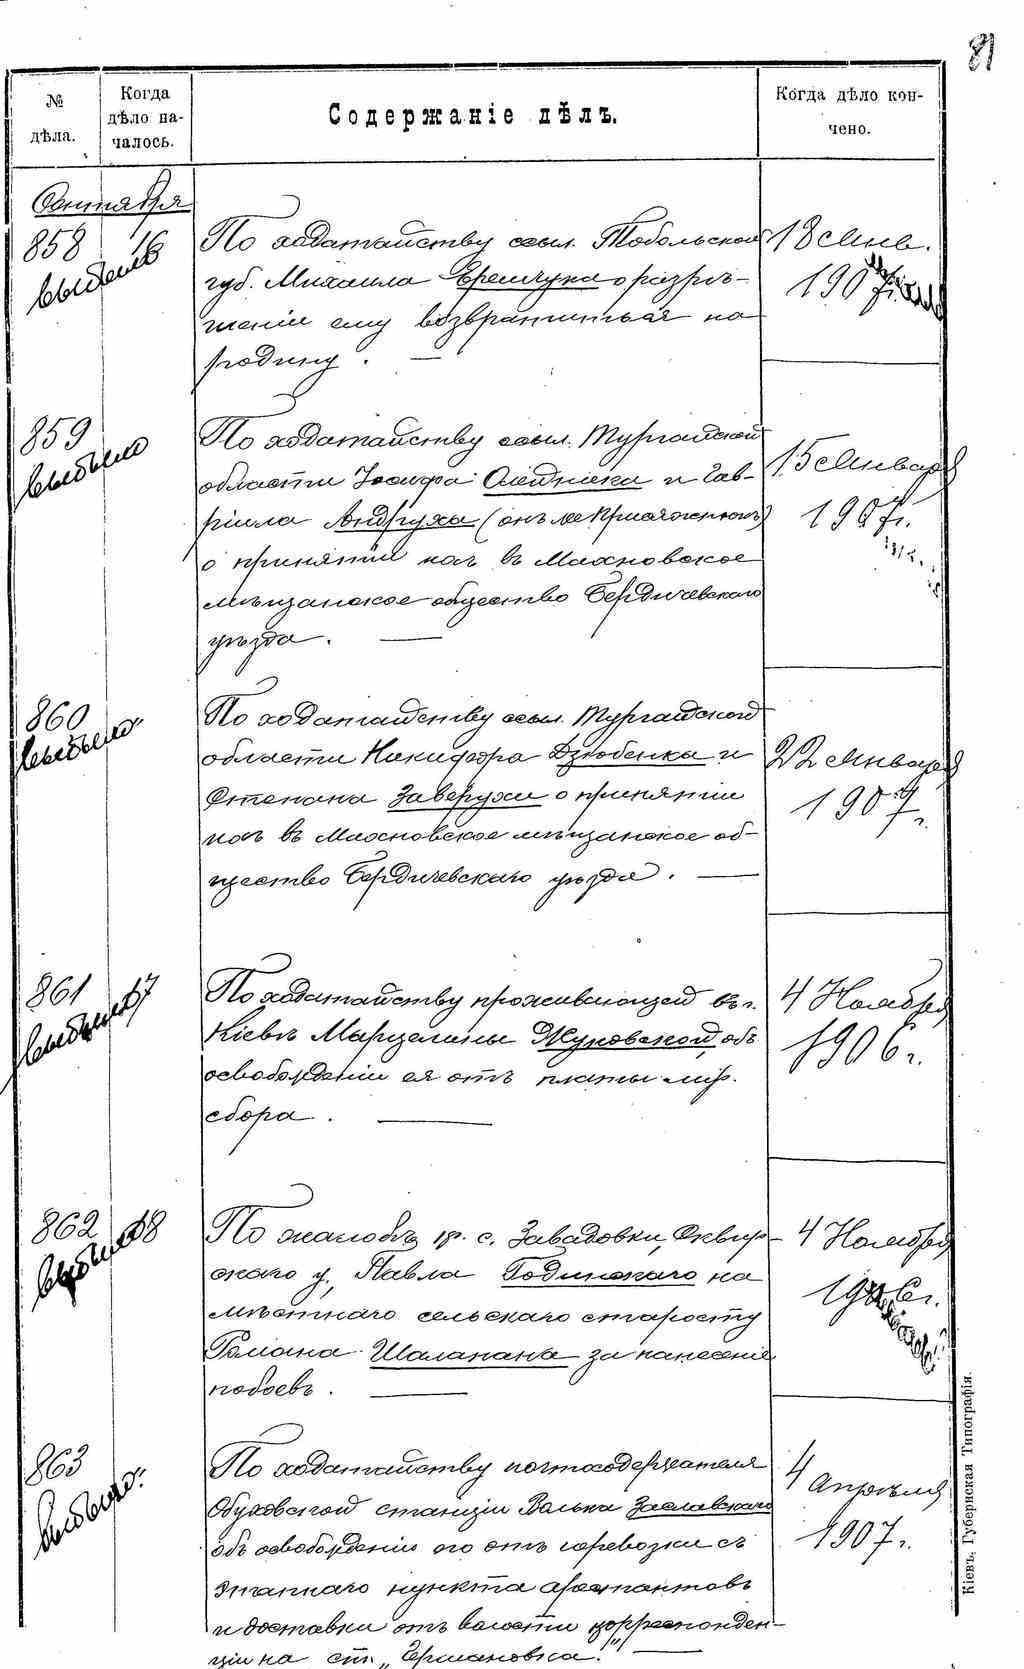 81
№ дѣла.
Когда дѣло на-
чалось.
Содержаніе дѣлъ.
Когда дѣло кон-
чено.
Сентября
858 16 По ходатайству ссыл. Тобольской 18 Янв.
выбыло губ. Михаила Еремчука о разрѣ- 1907 г.
шеніи ему возвратиться на
родину. —
859 По ходатайству ссыл. Тургайской 15 Января
выбыло области Іосифа Олейника и Гав- 1907 г.
ріила Андрухи (онъ же
о принятіи ихъ въ Махновское
мѣщанское общество Бердичевскаго
уѣзда. —
860 По ходатайству ссыл. Тургайской
выбыло области Никифора Дзюбенка и 22 Января
Степана Заверухи о принятіи 1907 г.
ихъ въ Махновское мѣщанское об-
щество Бердичевскаго уѣзда. —
861 17 По ходатайству проживающей въ г. 4 Ноября
выбыло Кіевѣ Марцелины Жуковской, объ 1906 г.
освобожденіи ея отъ платы
сбора. —
862 18 По жалобѣ кр. с. Завадовки, Сквир- 4 Ноября
выбыло скаго у., Павла Годинскаго на 1906 г.
мѣстнаго сельскаго старосту
Романа Шалапана за нанесеніе
побоевъ. —
863 По ходатайству почтосодержателя 4 Апрѣля
выбыло Обуховской станціи Волька Заславскаго 1907 г.
объ освобожденіи его отъ перевозки съ
этапнаго пункта арестантовъ
и доставки отъ волости корреспонден-
ціи на ст. „Германовка." —
Кіевъ, Губернская Типографія.